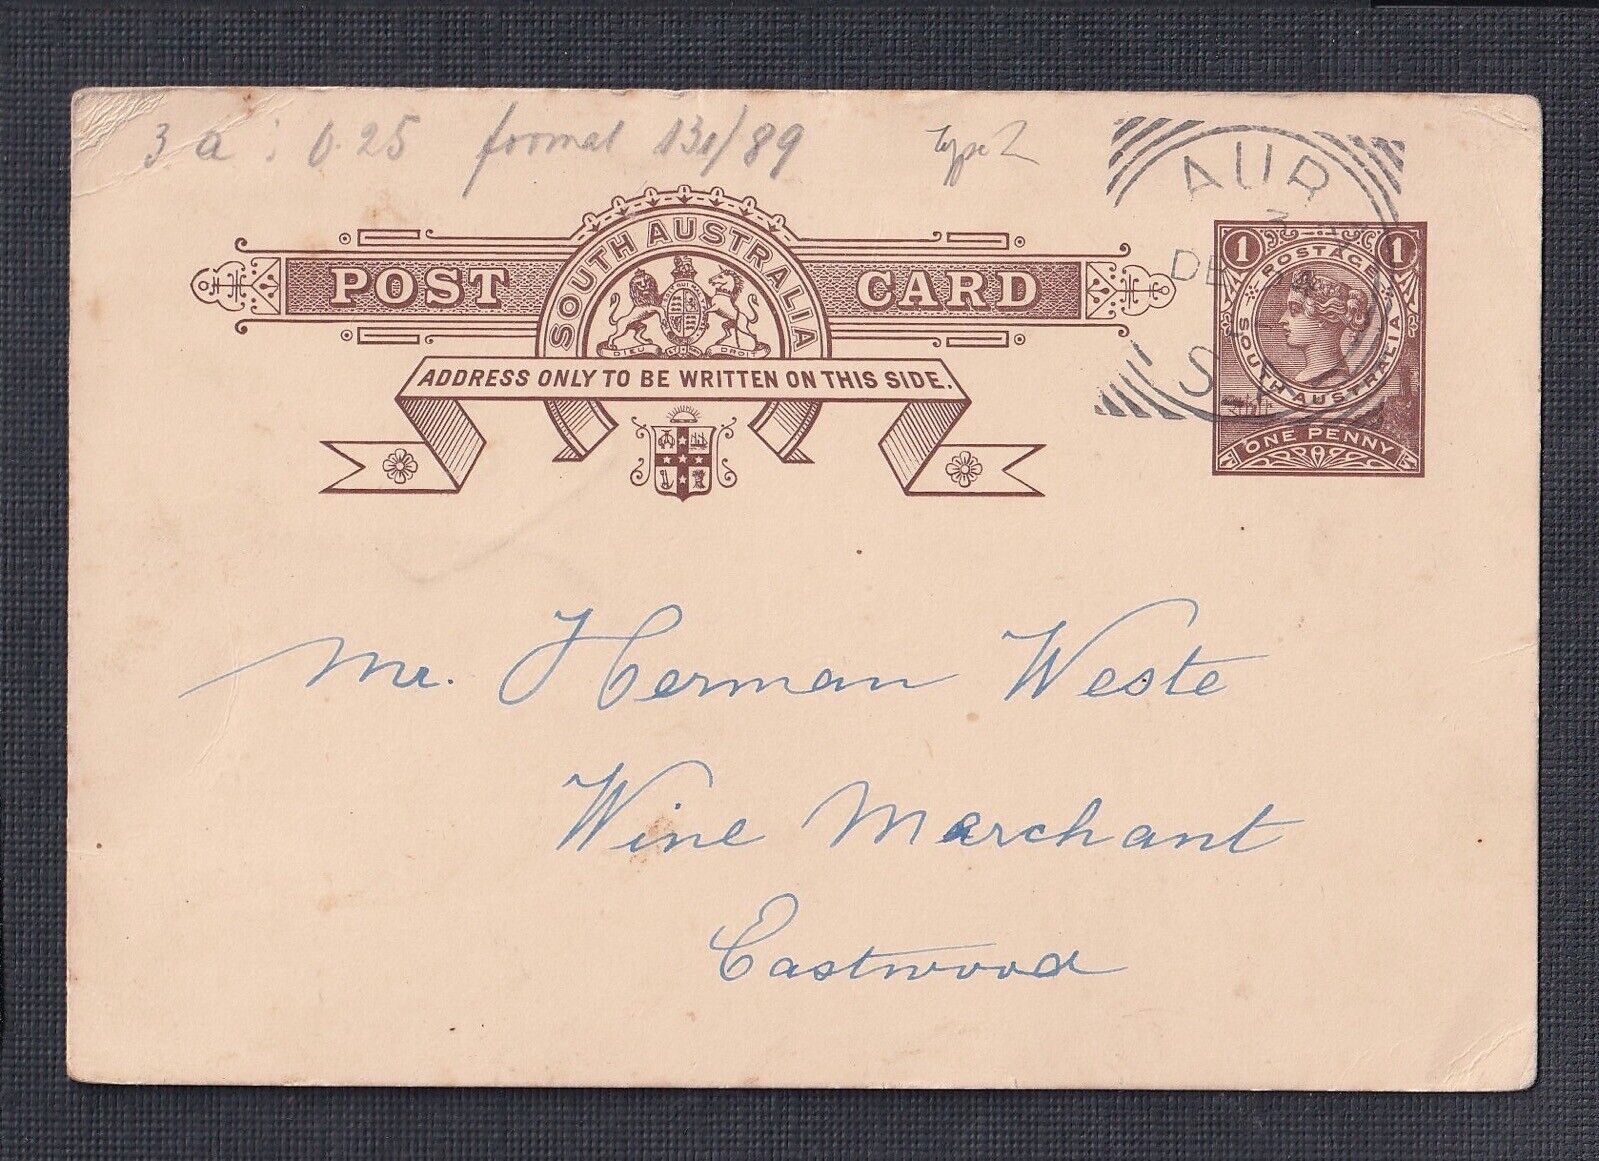 3 a : 0.25 format 131/89 type 2
AUR
DE
S
SOUTH AUSTRALIA
POST CARD
DIEU ET MON DROIT
ADDRESS ONLY TO BE WRITTEN ON THIS SIDE.
1 1
POSTAGE
SOUTH AUSTRALIA
ONE PENNY
Mr. Herman Weste
Wine Merchant
Eastwood